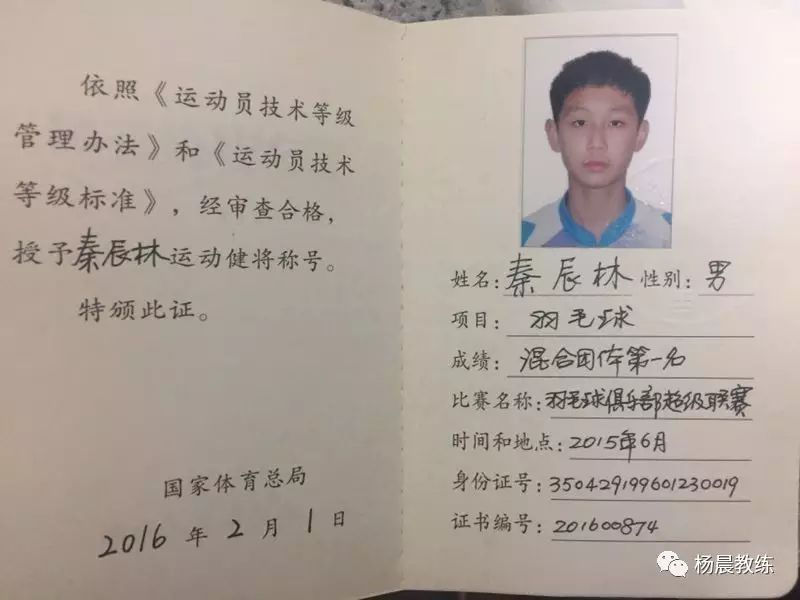 依照《运动员技术等级
管理办法》和《运动员技术
等级标准》，经审查合格，
授予秦辰林运动健将称号。
特颁此证。
国家体育总局
2016年2月1日
姓名：秦辰林 性别：男
项目：羽毛球
成绩：混合团体第一名
比赛名称：羽毛球俱乐部超级联赛
时间和地点：2015年6月
身份证号：350429199601230019
证书编号：201600874
杨晨教练